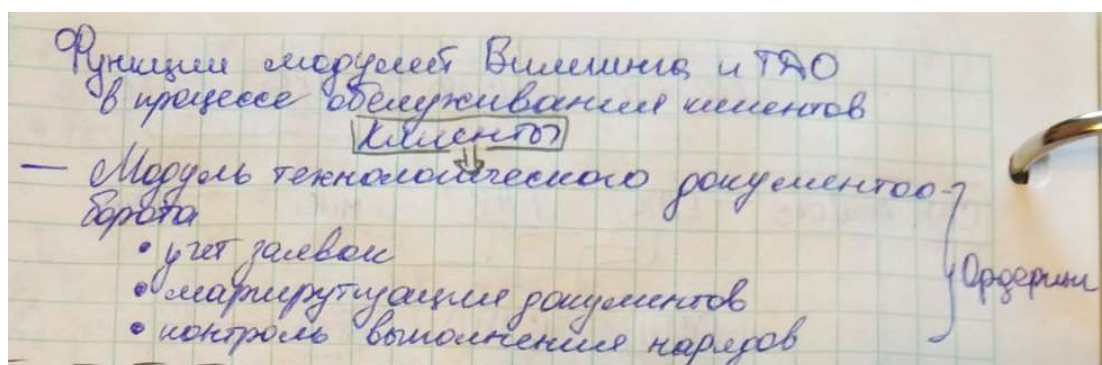 Функции модулей Биллинга и ТАО
в процессе обслуживания клиентов
Клиенты
— Модуль технологического документоо-
борота
• учет заявок
• маршрутизация документов
• контроль выполнения нарядов
Ордеринг